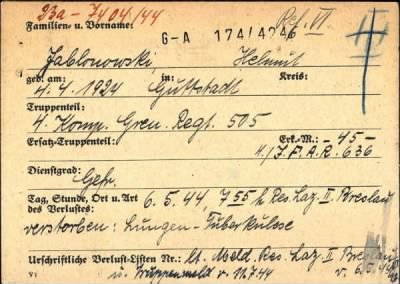 23a - 7404/44
Familien- u. Vorname: G-A 174/4246 Ref. VI
Jablonowski, Helmut
geb. am: in: Kreis:
4. 4. 1924 Guttstadt
Truppenteil:
4. Komp. Gren. Regt. 505
Ersatz-Truppenteil: Erk.-M.: -45-
4./J.E.A.R. 636
Dienstgrad:
Gefr.
Tag, Stunde, Ort u. Art des Verlustes: 6. 5. 44, 755 h Res. Laz. II, Breslau
verstorben: Lungen-Tuberkulose
Urschriftliche Verlust-Listen Nr.: lt. Meld. Res. Laz. II Breslau
u. Truppenmeld v. 11.7.44 v. 6.5.44